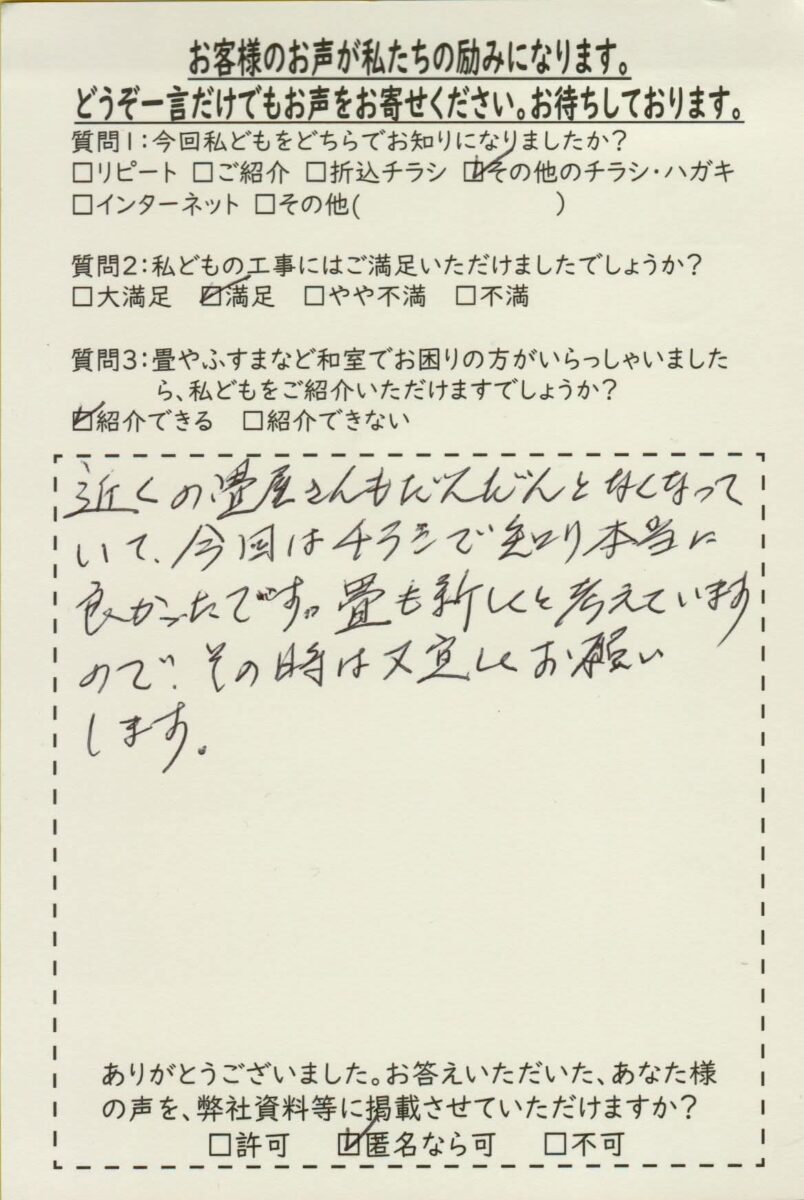 お客様のお声が私たちの励みになります。
どうぞ一言だけでもお声をお寄せください。お待ちしております。
質問1:今回私どもをどちらでお知りになりましたか?
□リピート □ご紹介 □折込チラシ ☑その他のチラシ・ハガキ
□インターネット □その他(　　　　　　　　)
質問2:私どもの工事にはご満足いただけましたでしょうか?
□大満足 ☑満足 □やや不満 □不満
質問3:畳やふすまなど和室でお困りの方がいらっしゃいました
ら、私どもをご紹介いただけますでしょうか?
☑紹介できる □紹介できない
近くの畳屋さんもだんだんとなくなって
いて、今回はチラシで知り本当に
良かったです。畳も新しくと考えています
ので、その時は又宜しくお願い
します。
ありがとうございました。お答えいただいた、あなた様
の声を、弊社資料等に掲載させていただけますか?
□許可 ☑匿名なら可 □不可